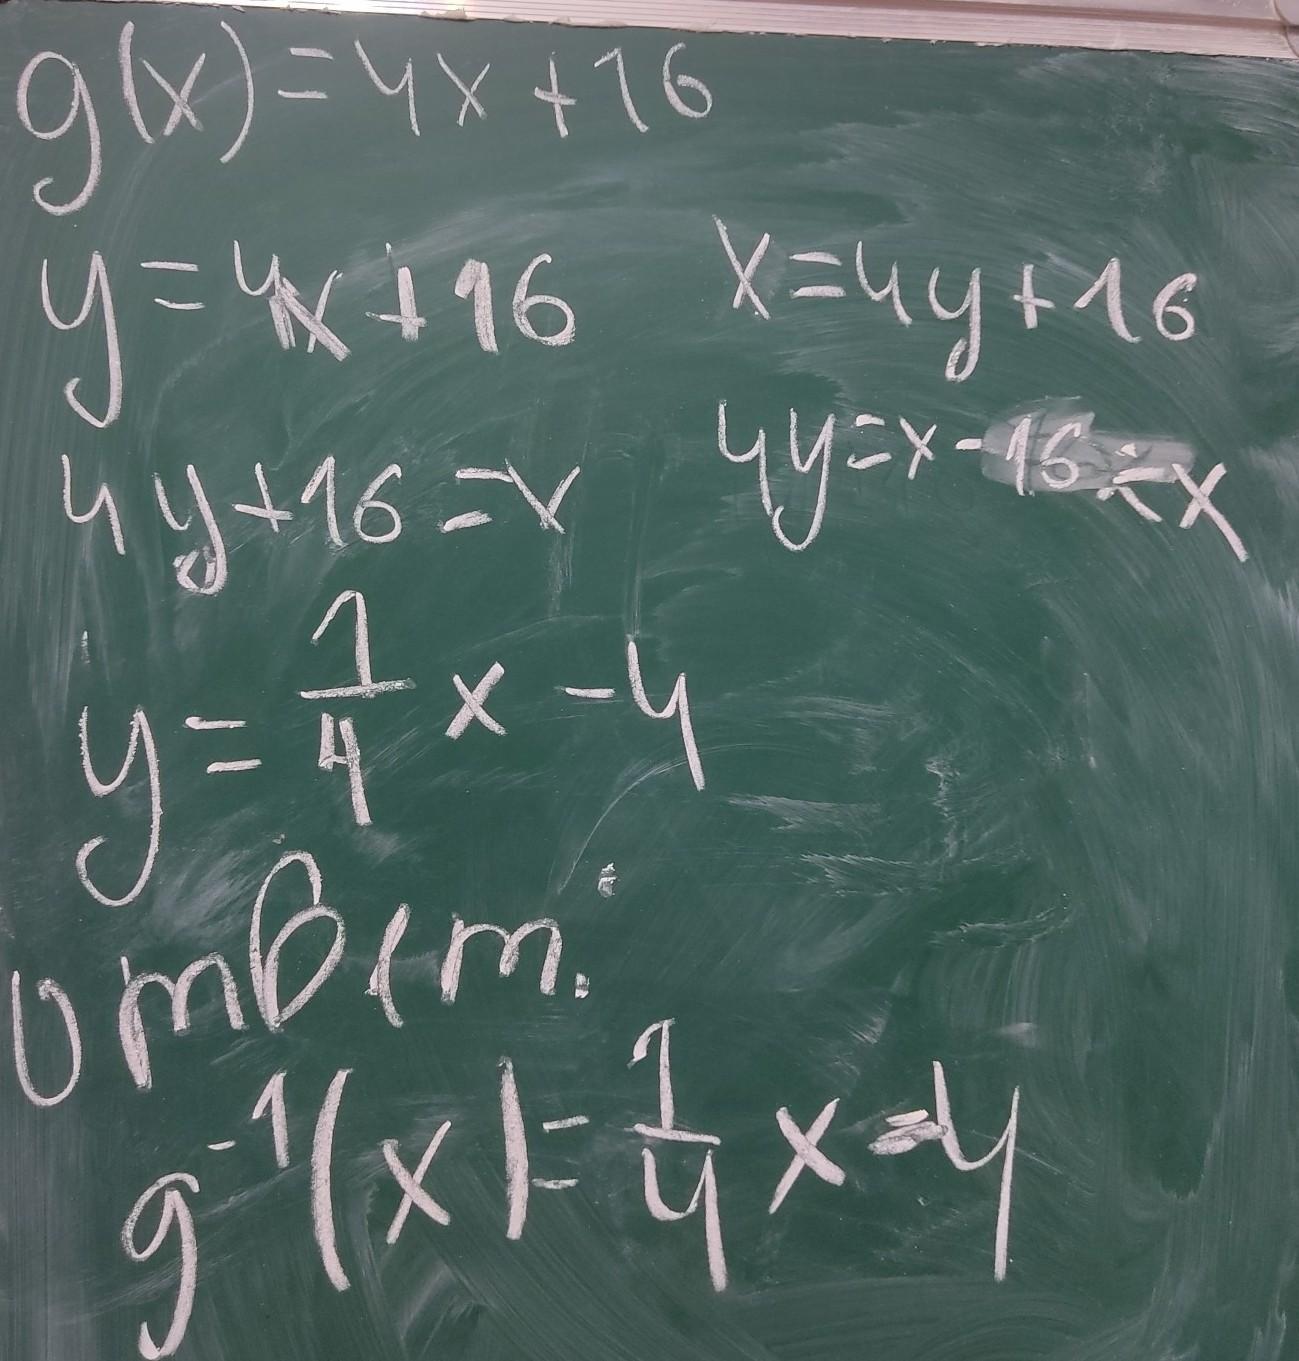 g(x) = 4x + 16
y = 4x + 16
x = 4y + 16
4y + 16 = x
4y = x - 16 = x
y = 1/4 x - 4
Ответ:
g⁻¹(x) = 1/4 x - 4